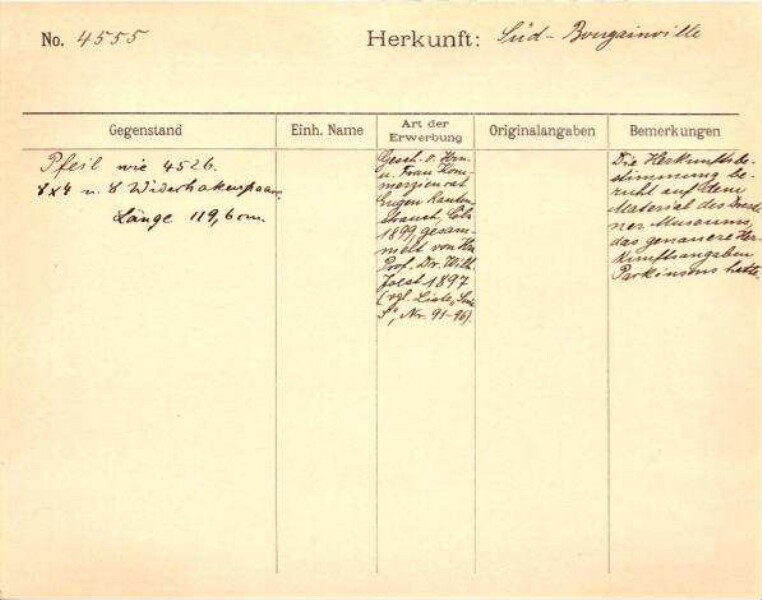 No. 4555
Herkunft: Süd-Bougainville
Gegenstand
Einh. Name
Art der Erwerbung
Originalangaben
Bemerkungen
Pfeil wie 4526.
8x4 u. 8 Widerhakenpaare,
Länge 119,6 cm.
Gesch. v. Hrn.
u. Frau Kom-
merzienrat
Eugen Rauten-
strauch, Cöln
1899, gesam-
melt von Hrn.
Prof. Dr. Wilh.
Joest 1897
(vgl. Liste
Nr. 91-96).
Die Herkunftsbe-
stimmung be-
ruht auf dem
Material des Dresde-
ner Museums,
das genauere Her-
kunftsangaben
Parkinsons hatte.